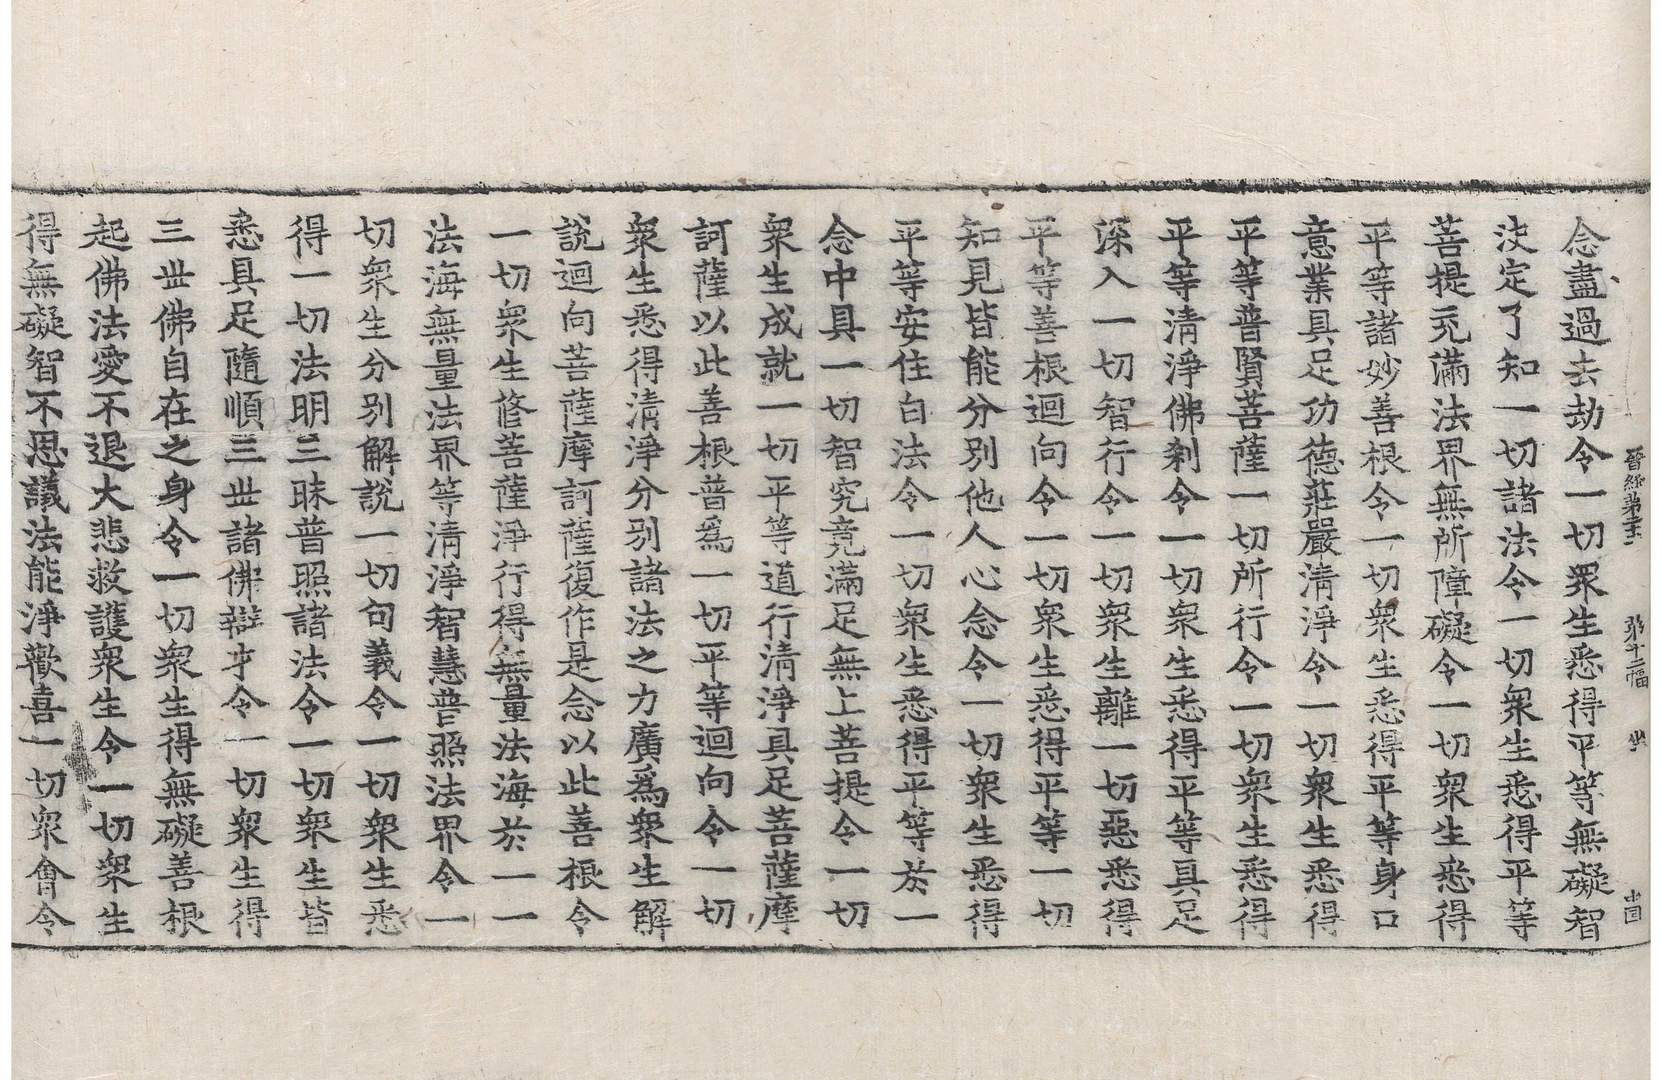 晉經第二十一 第十二幅 坐
念盡過去劫令一切眾生悉得平等無礙智
决定了知一切諸法令一切眾生悉得平等
菩提充滿法界無所障礙令一切眾生悉得
平等諸妙善根令一切眾生悉得平等身口
意業具足功德莊嚴清淨令一切眾生悉得
平等普賢菩薩一切所行令一切眾生悉得
平等清淨佛剎令一切眾生悉得平等具足
深入一切智行令一切眾生離一切惡悉得
平等善根迴向令一切眾生悉得平等一切
知見皆能分別他人心念令一切眾生悉得
平等安住白法令一切眾生悉得平等於一
念中具一切智究竟滿足無上菩提令一切
眾生成就一切平等道行清淨具足菩薩摩
訶薩以此善根普為一切平等迴向令一切
眾生悉得清淨分別諸法之力廣為眾生解
說迴向菩薩摩訶薩復作是念以此善根令
一切眾生修菩薩淨行得無量法海於一一
法海無量法界等清淨智慧普照法界令一
切眾生分別解說一切句義令一切眾生悉
得一切法明三昧普照諸法令一切眾生皆
悉具足隨順三世諸佛辯才令一切眾生得
三世佛自在之身令一切眾生得無礙善根
起佛法愛不退大悲救護眾生令一切眾生
得無礙智不思議法能淨歡喜一切眾會令